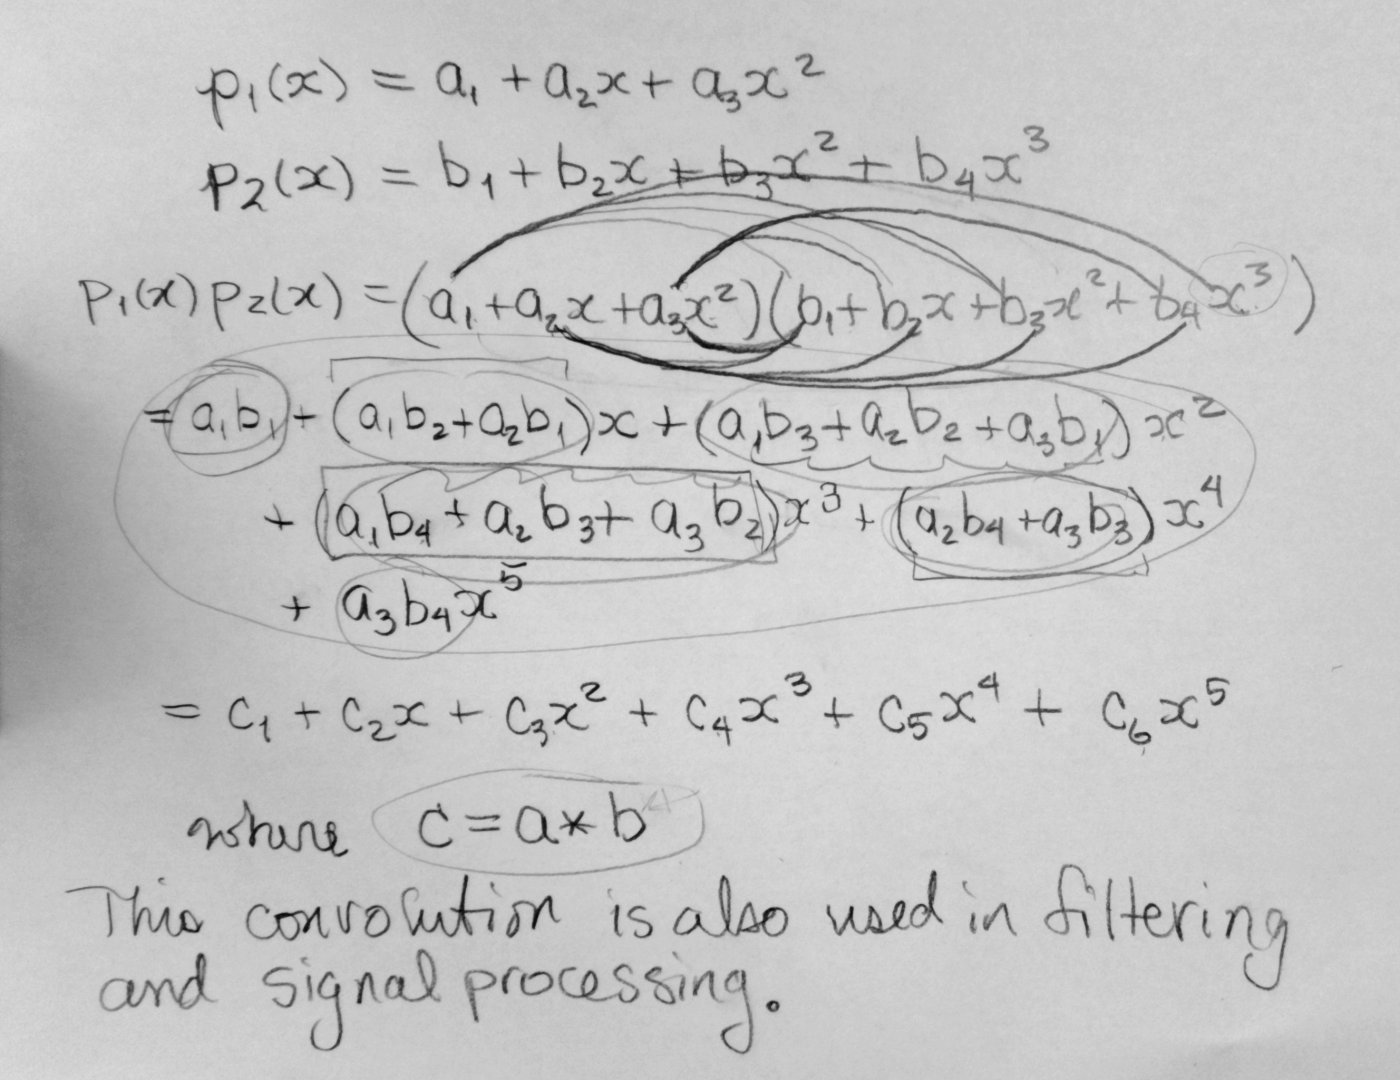 p₁(x) = a₁ + a₂x + a₃x²
p₂(x) = b₁ + b₂x + b₃x² + b₄x³
p₁(x) p₂(x) = (a₁ + a₂x + a₃x²)(b₁ + b₂x + b₃x² + b₄x³)
= a₁b₁ + (a₁b₂ + a₂b₁)x + (a₁b₃ + a₂b₂ + a₃b₁)x²
+ (a₁b₄ + a₂b₃ + a₃b₂)x³ + (a₂b₄ + a₃b₃)x⁴
+ a₃b₄x⁵
= c₁ + c₂x + c₃x² + c₄x³ + c₅x⁴ + c₆x⁵
where c = a * b
This convolution is also used in filtering
and signal processing.